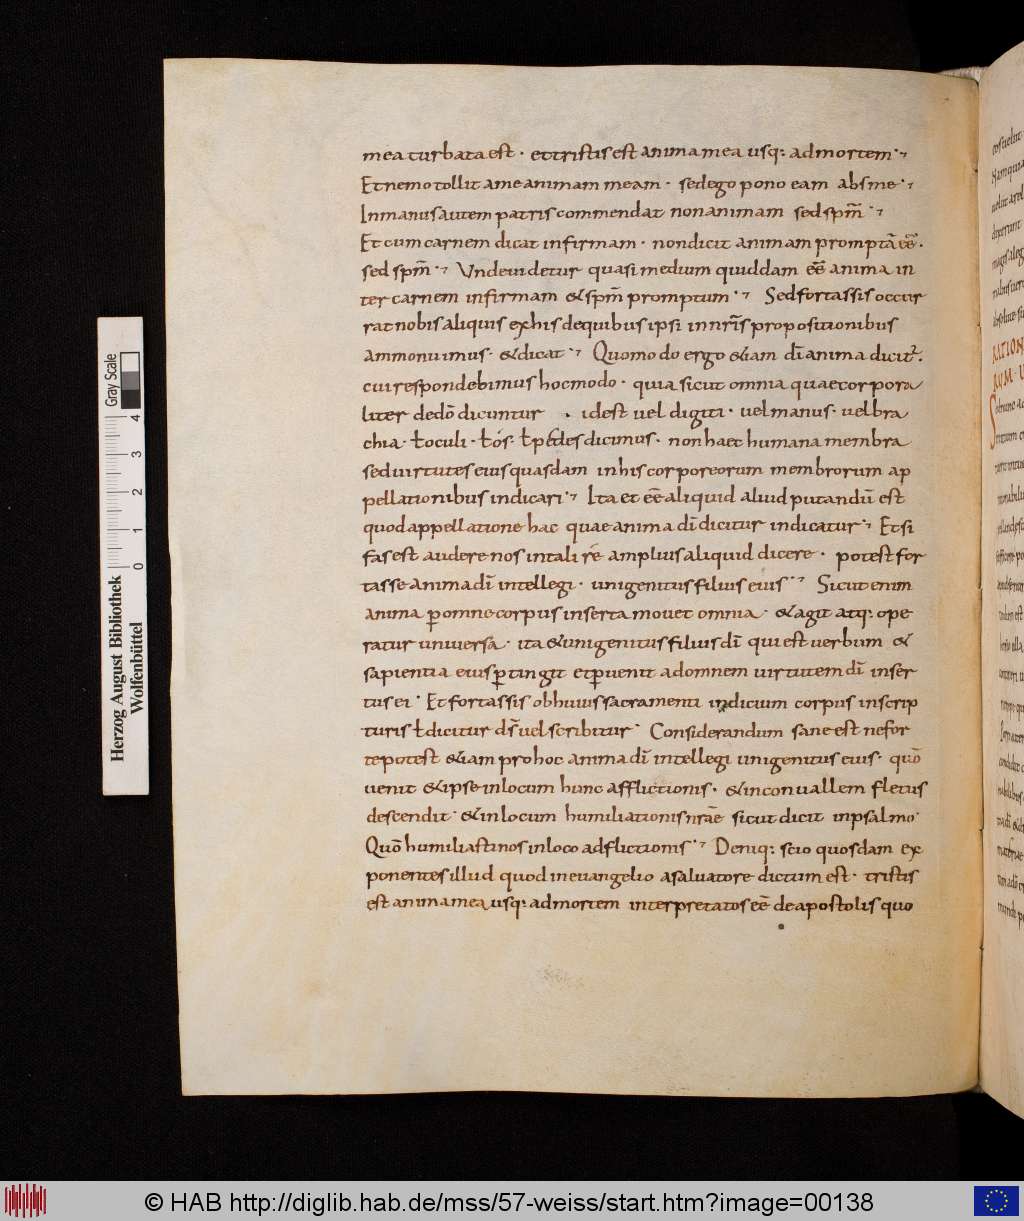 mea turbata est · et tristis est anima mea usq: ad mortem ·
Et nemo tollit a me animam meam · sed ego pono eam abs me ·
In manus autem patris commendat non animam sed spm̄ ·
Et cum carnem dicat infirmam · non dicit animam promptā eē ·
sed spm̄ · Unde videtur quasi medium quiddam eē anima in
ter carnem infirmam & spm̄ promptum · Sed fortassis occur
rat nobis aliquis ex his de quibus ipsi in nr̄is propositionibus
ammonuimus · & dicat · Quomodo ergo &iam dī anima dicit̄ ·
cui respondebimus hoc modo · quia sicut omnia quae corpora
liter de dō dicuntur · id est vel digiti · vel manus · vel bra
chia · ł oculi · ł os · ł pedes dicimus · non haec humana membra
sed virtutes eius quasdam in his corporeorum membrorum ap
pellationibus indicari · Ita et eē aliquid aliud putandū est
quod appellatione hac quae anima dī dicitur indicatur · Et si
fas est audere nos in tali re amplius aliquid dicere · potest for
tasse anima dī intellegi · unigenitus filius eius · Sicut enim
anima p̄ omne corpus inserta movet omnia · & agit atq: ope
ratur universa · ita & unigenitus filius dī qui est verbum &
sapientia eius p̄tingit et p̄venit ad omnem virtutem dī inser
tus ei · Et fortassis ob huius sacramenti indicium corpus in scrip
turis ł dicitur ds̄ vel scribitur · Considerandum sane est ne for
te potest &iam pro hoc anima dī intellegi unigenitus eius · quō
venit & ipse in locum hunc afflictionis · & in convallem fletus
descendit · & in locum humiliationis nr̄ae sicut dicit in psalmo ·
Quō humiliasti nos in loco adflictionis · Deniq: scio quosdam ex
ponentes illud quod in evangelio a salvatore dictum est · tristis
est anima mea usq: ad mortem interpretatos eē de apostolis quo
Herzog August Bibliothek
Wolfenbüttel
0 1 2 3 4
Gray Scale
RATION
© HAB http://diglib.hab.de/mss/57-weiss/start.htm?image=00138